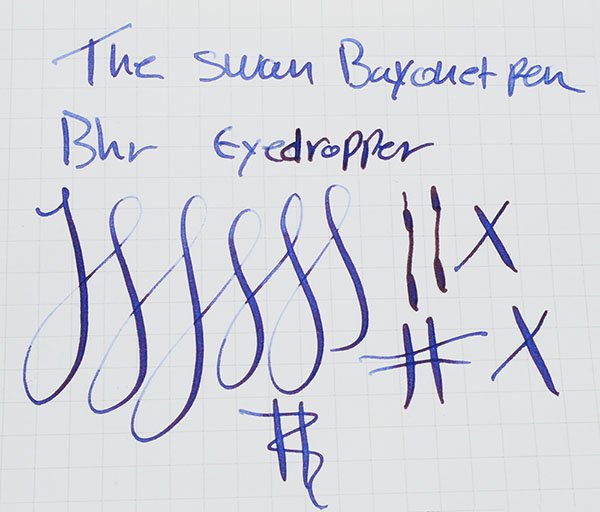 The Swan Bayonet pen
Bhr Eyedropper